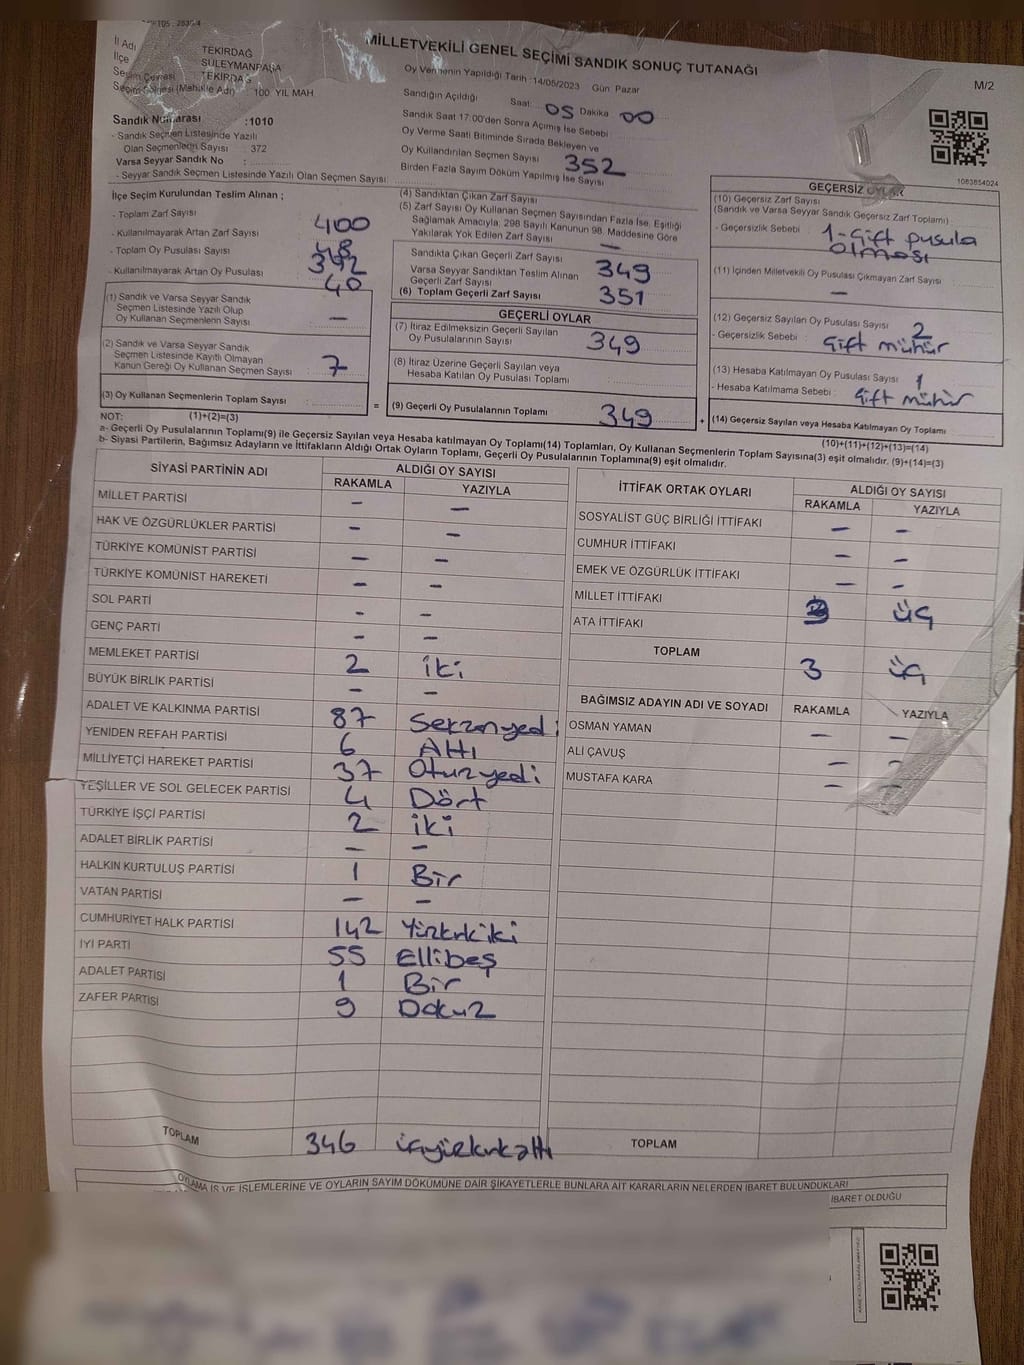 MİLLETVEKİLİ GENEL SEÇİMİ SANDIK SONUÇ TUTANAĞI
M/2
İl Adı TEKİRDAĞ
İlçe SÜLEYMANPAŞA
Seçim Çevresi TEKİRDAĞ
Seçim Bölgesi (Mahalle Adı) 100 YIL MAH.
Oy Vermenin Yapıldığı Tarih :14/05/2023 Gün Pazar
Sandığın Açıldığı Saat: 05 Dakika 00
Sandık Saat 17:00'den Sonra Açılmış İse Sebebi
Oy Verme Saati Bitiminde Sırada Bekleyen ve
Oy Kullandırılan Seçmen Sayısı 352
Birden Fazla Sayım Döküm Yapılmış İse Sayısı
Sandık Numarası :1010
- Sandık Seçmen Listesinde Yazılı
Olan Seçmenlerin Sayısı : 372
Varsa Seyyar Sandık No :
- Seyyar Sandık Seçmen Listesinde Yazılı Olan Seçmen Sayısı
1083854024
İlçe Seçim Kurulundan Teslim Alınan ;
- Toplam Zarf Sayısı 400
- Kullanılmayarak Artan Zarf Sayısı 48
- Toplam Oy Pusulası Sayısı
- Kullanılmayarak Artan Oy Pusulası 40
(1) Sandık ve Varsa Seyyar Sandık
Seçmen Listesinde Yazılı Olup
Oy Kullanan Seçmenlerin Sayısı : –
(2) Sandık ve Varsa Seyyar Sandık
Seçmen Listesinde Kayıtlı Olmayan
Kanun Gereği Oy Kullanan Seçmen Sayısı : 7
(3) Oy Kullanan Seçmenlerin Toplam Sayısı :
(4) Sandıktan Çıkan Zarf Sayısı
(5) Zarf Sayısı Oy Kullanan Seçmen Sayısından Fazla İse, Eşitliği
Sağlamak Amacıyla; 298 Sayılı Kanunun 98. Maddesine Göre
Yakılarak Yok Edilen Zarf Sayısı –
Sandıkta Çıkan Geçerli Zarf Sayısı 349
Varsa Seyyar Sandıktan Teslim Alınan
Geçerli Zarf Sayısı
(6) Toplam Geçerli Zarf Sayısı 351
GEÇERLİ OYLAR
(7) İtiraz Edilmeksizin Geçerli Sayılan
Oy Pusulalarının Sayısı : 349
(8) İtiraz Üzerine Geçerli Sayılan veya
Hesaba Katılan Oy Pusulası Toplamı
= (9) Geçerli Oy Pusulalarının Toplamı 349 +
GEÇERSİZ OYLAR
(10) Geçersiz Zarf Sayısı
(Sandık ve Varsa Seyyar Sandık Geçersiz Zarf Toplamı)
- Geçersizlik Sebebi : 1-Çift pusula
olması
(11) İçinden Milletvekili Oy Pusulası Çıkmayan Zarf Sayısı :
–
(12) Geçersiz Sayılan Oy Pusulası Sayısı : 2
- Geçersizlik Sebebi : Çift mühür
(13) Hesaba Katılmayan Oy Pusulası Sayısı : 1
- Hesaba Katılmama Sebebi : Çift mühür
(14) Geçersiz Sayılan veya Hesaba Katılmayan Oy Toplamı
(10)+(11)+(12)+(13)=(14)
NOT: (1)+(2)=(3)
a- Geçerli Oy Pusulalarının Toplamı(9) ile Geçersiz Sayılan veya Hesaba katılmayan Oy Toplamı(14) Toplamları, Oy Kullanan Seçmenlerin Toplam Sayısına(3) eşit olmalıdır. (9)+(14)=(3)
b- Siyasi Partilerin, Bağımsız Adayların ve İttifakların Aldığı Ortak Oyların Toplamı, Geçerli Oy Pusulalarının Toplamına(9) eşit olmalıdır.
SİYASİ PARTİNİN ADI ALDIĞI OY SAYISI
RAKAMLA YAZIYLA
MİLLET PARTİSİ – –
HAK VE ÖZGÜRLÜKLER PARTİSİ – –
TÜRKİYE KOMÜNİST PARTİSİ – –
TÜRKİYE KOMÜNİST HAREKETİ – –
SOL PARTİ – –
GENÇ PARTİ – –
MEMLEKET PARTİSİ 2 iki
BÜYÜK BİRLİK PARTİSİ – –
ADALET VE KALKINMA PARTİSİ 87 Seksenyedi
YENİDEN REFAH PARTİSİ 6 Altı
MİLLİYETÇİ HAREKET PARTİSİ 37 Otuzyedi
YEŞİLLER VE SOL GELECEK PARTİSİ 4 Dört
TÜRKİYE İŞÇİ PARTİSİ 2 iki
ADALET BİRLİK PARTİSİ – –
HALKIN KURTULUŞ PARTİSİ 1 Bir
VATAN PARTİSİ – –
CUMHURİYET HALK PARTİSİ 142 Yüzkırkiki
İYİ PARTİ 55 Ellibeş
ADALET PARTİSİ 1 Bir
ZAFER PARTİSİ 9 Dokuz
TOPLAM 346 üçyüzkırkaltı
İTTİFAK ORTAK OYLARI ALDIĞI OY SAYISI
RAKAMLA YAZIYLA
SOSYALİST GÜÇ BİRLİĞİ İTTİFAKI – –
CUMHUR İTTİFAKI – –
EMEK VE ÖZGÜRLÜK İTTİFAKI – –
MİLLET İTTİFAKI 3 üç
ATA İTTİFAKI
TOPLAM 3 üç
BAĞIMSIZ ADAYIN ADI VE SOYADI RAKAMLA YAZIYLA
OSMAN YAMAN – –
ALİ ÇAVUŞ – –
MUSTAFA KARA – –
TOPLAM
OYLAMA İŞ VE İŞLEMLERİNE VE OYLARIN SAYIM DÖKÜMÜNE DAİR ŞİKAYETLERLE BUNLARA AİT KARARLARIN NELERDEN İBARET BULUNDUKLARI
İBARET OLDUĞU